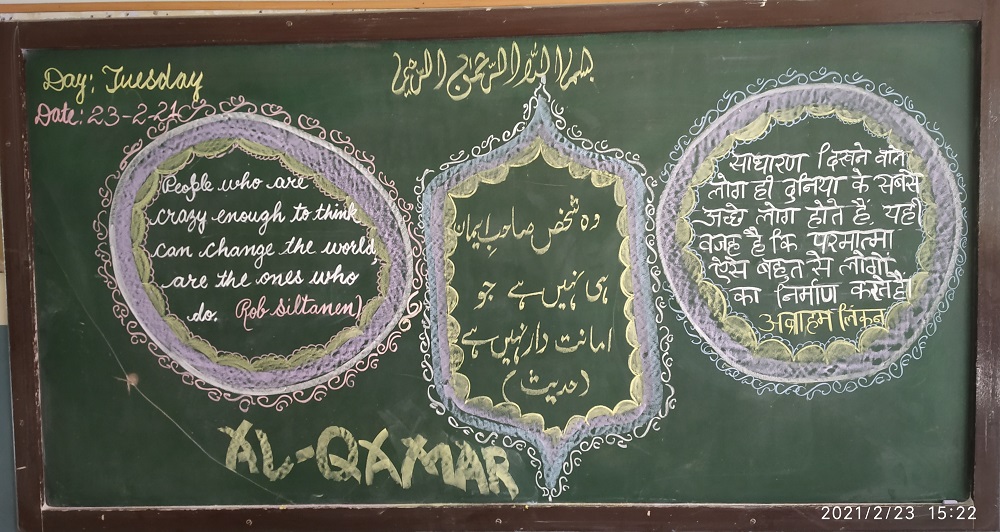 Day: Tuesday
Date: 23-2-21
بسم اللہ الرحمن الرحیم
People who are
crazy enough to think
can change the world,
are the ones who
do. (Rob Siltanen)
وہ شخص صاحبِ ایمان
ہی نہیں ہے جو
امانت دار نہیں ہے
(حدیث)
साधारण दिखने वाले
लोग ही दुनिया के सबसे
अच्छे लोग होते हैं यही
वजह है कि परमात्मा
ऐसे बहुत से लोगों
का निर्माण करते हैं।
अब्राहम लिंकन
AL-QAMAR
2021/2/23 15:22